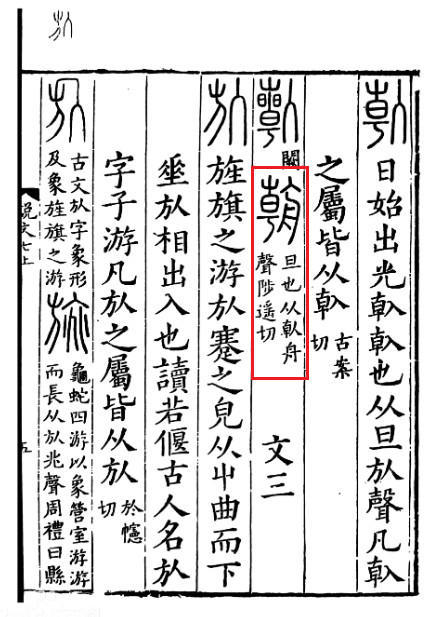 㫃
倝日始出光倝倝也从旦㫃聲凡倝
之屬皆从倝古案
切
𠦝闕
朝旦也从倝舟
聲陟遥切
文三
㫃旌旗之游㫃蹇之皃从屮曲而下
垂㫃相出入也讀若偃古人名㫃
字子游凡㫃之屬皆从㫃於幰
切
㫃古文㫃字象形
及象旌旗之游
旐龜蛇四游以象營室游游
而長从㫃兆聲周禮曰縣
說文七上
五